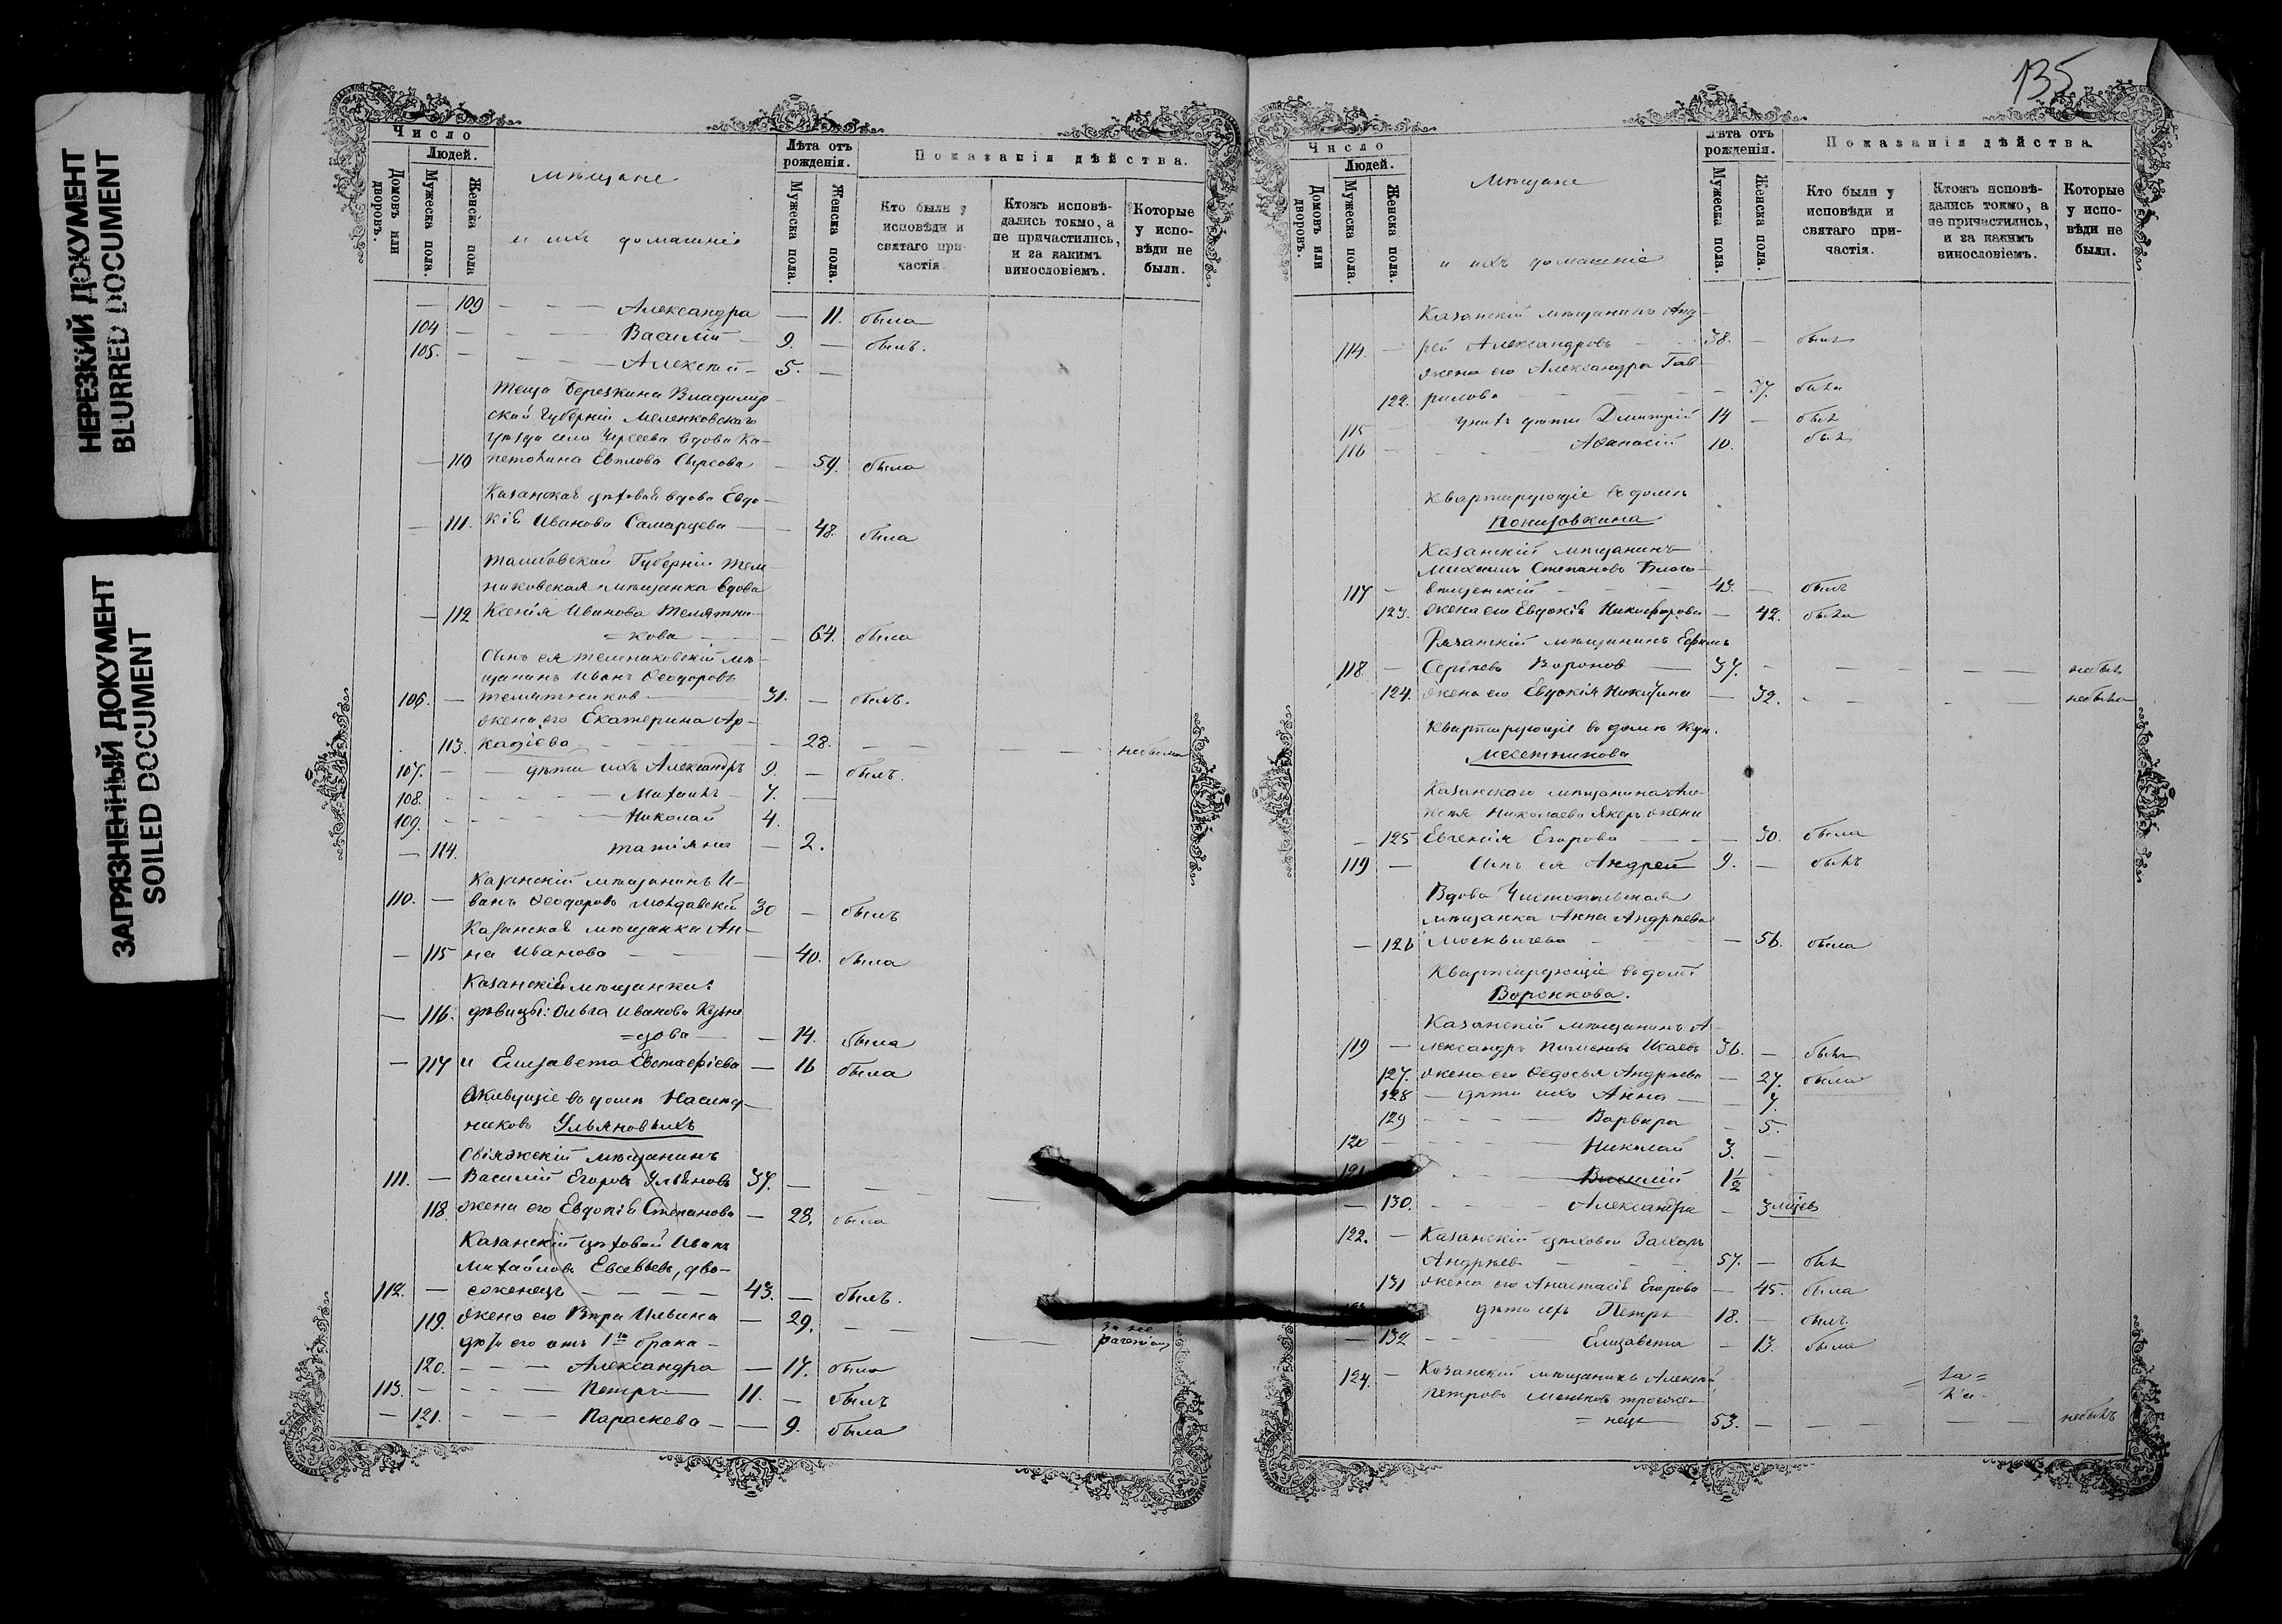 НЕРЕЗКИЙ ДОКУМЕНТ
BLURRED DOCUMENT
ЗАГРЯЗНЕННЫЙ ДОКУМЕНТ
SOILED DOCUMENT
Число
Людей.
Домовъ или дворовъ.
Мужеска пола.
Женска пола
мѣщане
и ихъ домашніе
Лѣта отъ рожденія.
Мужеска пола.
Женска пола.
Показанія дѣйства.
Кто были у исповѣди и святаго причастія.
Ктожъ исповѣдались токмо, а не причастились, и за какимъ винословіемъ.
Которые у исповѣди не были.
— 109 — — Александра — 11. была
104 — — — Василій — 9. — былъ.
105. — — — Алексѣй — 5. —
теща Березкина Владимір-
ской Губерніи Меленковскаго
уѣзда села вдова Ка-
— 110 питолина Сырсова — 59. была
Казанская цѣховая вдова Евдо-
— 111. кія Иванова Самарцева — 48. была
Тамбовской Губерніи Тем-
никовская мѣщанка вдова
— 112 Ксенія Иванова Телятни-
= кова — — 64. была
Сынъ ея темниковскій мѣ-
щанинъ Иванъ Ѳеодоровъ
106. — Телятниковъ — 31. — былъ.
жена его Екатерина Ар-
113. кадіева — — 28. — — — небыла
107. — — дѣти ихъ Александръ 9. — былъ.
108. — — — Михаилъ — 7. —
109. — — — Николай 4.
— 114. Татіяна — 2.
Казанскій мѣщанинъ И-
110. — ванъ Ѳеодоровъ Молдавскій 30 — былъ
Казанская мѣщанка Ан-
— 115 на Иванова — — 40. была
Казанскія мѣщанки:
— 116. дѣвицы: Ольга Иванова Кузне
=цова — — 14. была
— 117 и Елизавета Евстафіева — 16 была
Живущіе въ домѣ Наслѣд-
никовъ Ульяновыхъ
Свіяжскій мѣщанинъ
111. — Василій Егоровъ Ульяновъ 37. — — —
118. жена его Евдокія Степанова — 28. была
Казанскій цѣховой Иванъ
Михайловъ Евсевьевъ, дво-
112. — еженецъ — — 43. — былъ.
119. жена его Вѣра Ильина — 29. — —
дѣти его отъ 1го брака —
120. — — — Александра — 17. была
113. — — — Петръ — 11. — былъ
— 121. — — — Параскева — — 9. была
135
Число
Людей.
Домовъ или дворовъ.
Мужеска пола.
Женска пола.
Мѣщане
и ихъ домашніе
Лѣта отъ рожденія.
Мужеска пола.
Женска пола.
Показанія дѣйства.
Кто были у исповѣди и святаго причастія.
Ктожъ исповѣдались токмо, а не причастились, и за какимъ винословіемъ.
Которые у исповѣди не были.
Казанскій мѣщанинъ Анд-
114. — рей Александровъ 38. — былъ
жена его Александра Гав-
122. рилова — 37. была
115 — у нихъ дѣти Дмитрій 14 — былъ
116 — Аѳанасій 10. былъ
Квартирующіе въ домѣ
Понизовкина
Казанскій мѣщанинъ
Михаилъ Степановъ Благо-
117 — вѣщенскій — 43. — былъ
123. жена его Евдокія Никифорова — 42. была
Рязанскій мѣщанинъ Ефимъ
118. — Сергѣевъ Вороновъ — 37. — — — небылъ
124. жена его Евдокія Никитина — 32. — — небыла
Квартирующіе въ домѣ Куп.
Месетникова
Казанскаго мѣщанина Але-
ксѣя Николаева жена
— 125 Евгенія Егорова — — 30. была
119 — Сынъ ея Андрей 9. — былъ
Вдова Чистопольская
мѣщанка Анна Андрѣева
— 126 Москвичева — 56. была
Квартирующіе въ домѣ
Воронкова.
Казанскій мѣщанинъ А-
119 — лександръ Пименовъ Исаевъ 36. — былъ
127. жена его Ѳедосья Андрѣева — 27. была
128 — дѣти ихъ Анна — 7.
129 — — Варвара — 5.
120 — — — Николай 3. —
121 — — Василій 1½
— 130. — — — Александра — 3 мѣсяц.
122. — Казанскій цѣховой Захаръ
Андрѣевъ — — 57. — былъ
131 жена его Анастасія Егорова — 45. была
дѣти ихъ Петръ 18. — былъ.
— 132 — — Елизавета — 13. была
124. — Казанскій мѣщанинъ Алексѣй
Петровъ Меньковъ троеже-
= нецъ 53. — — — небылъ